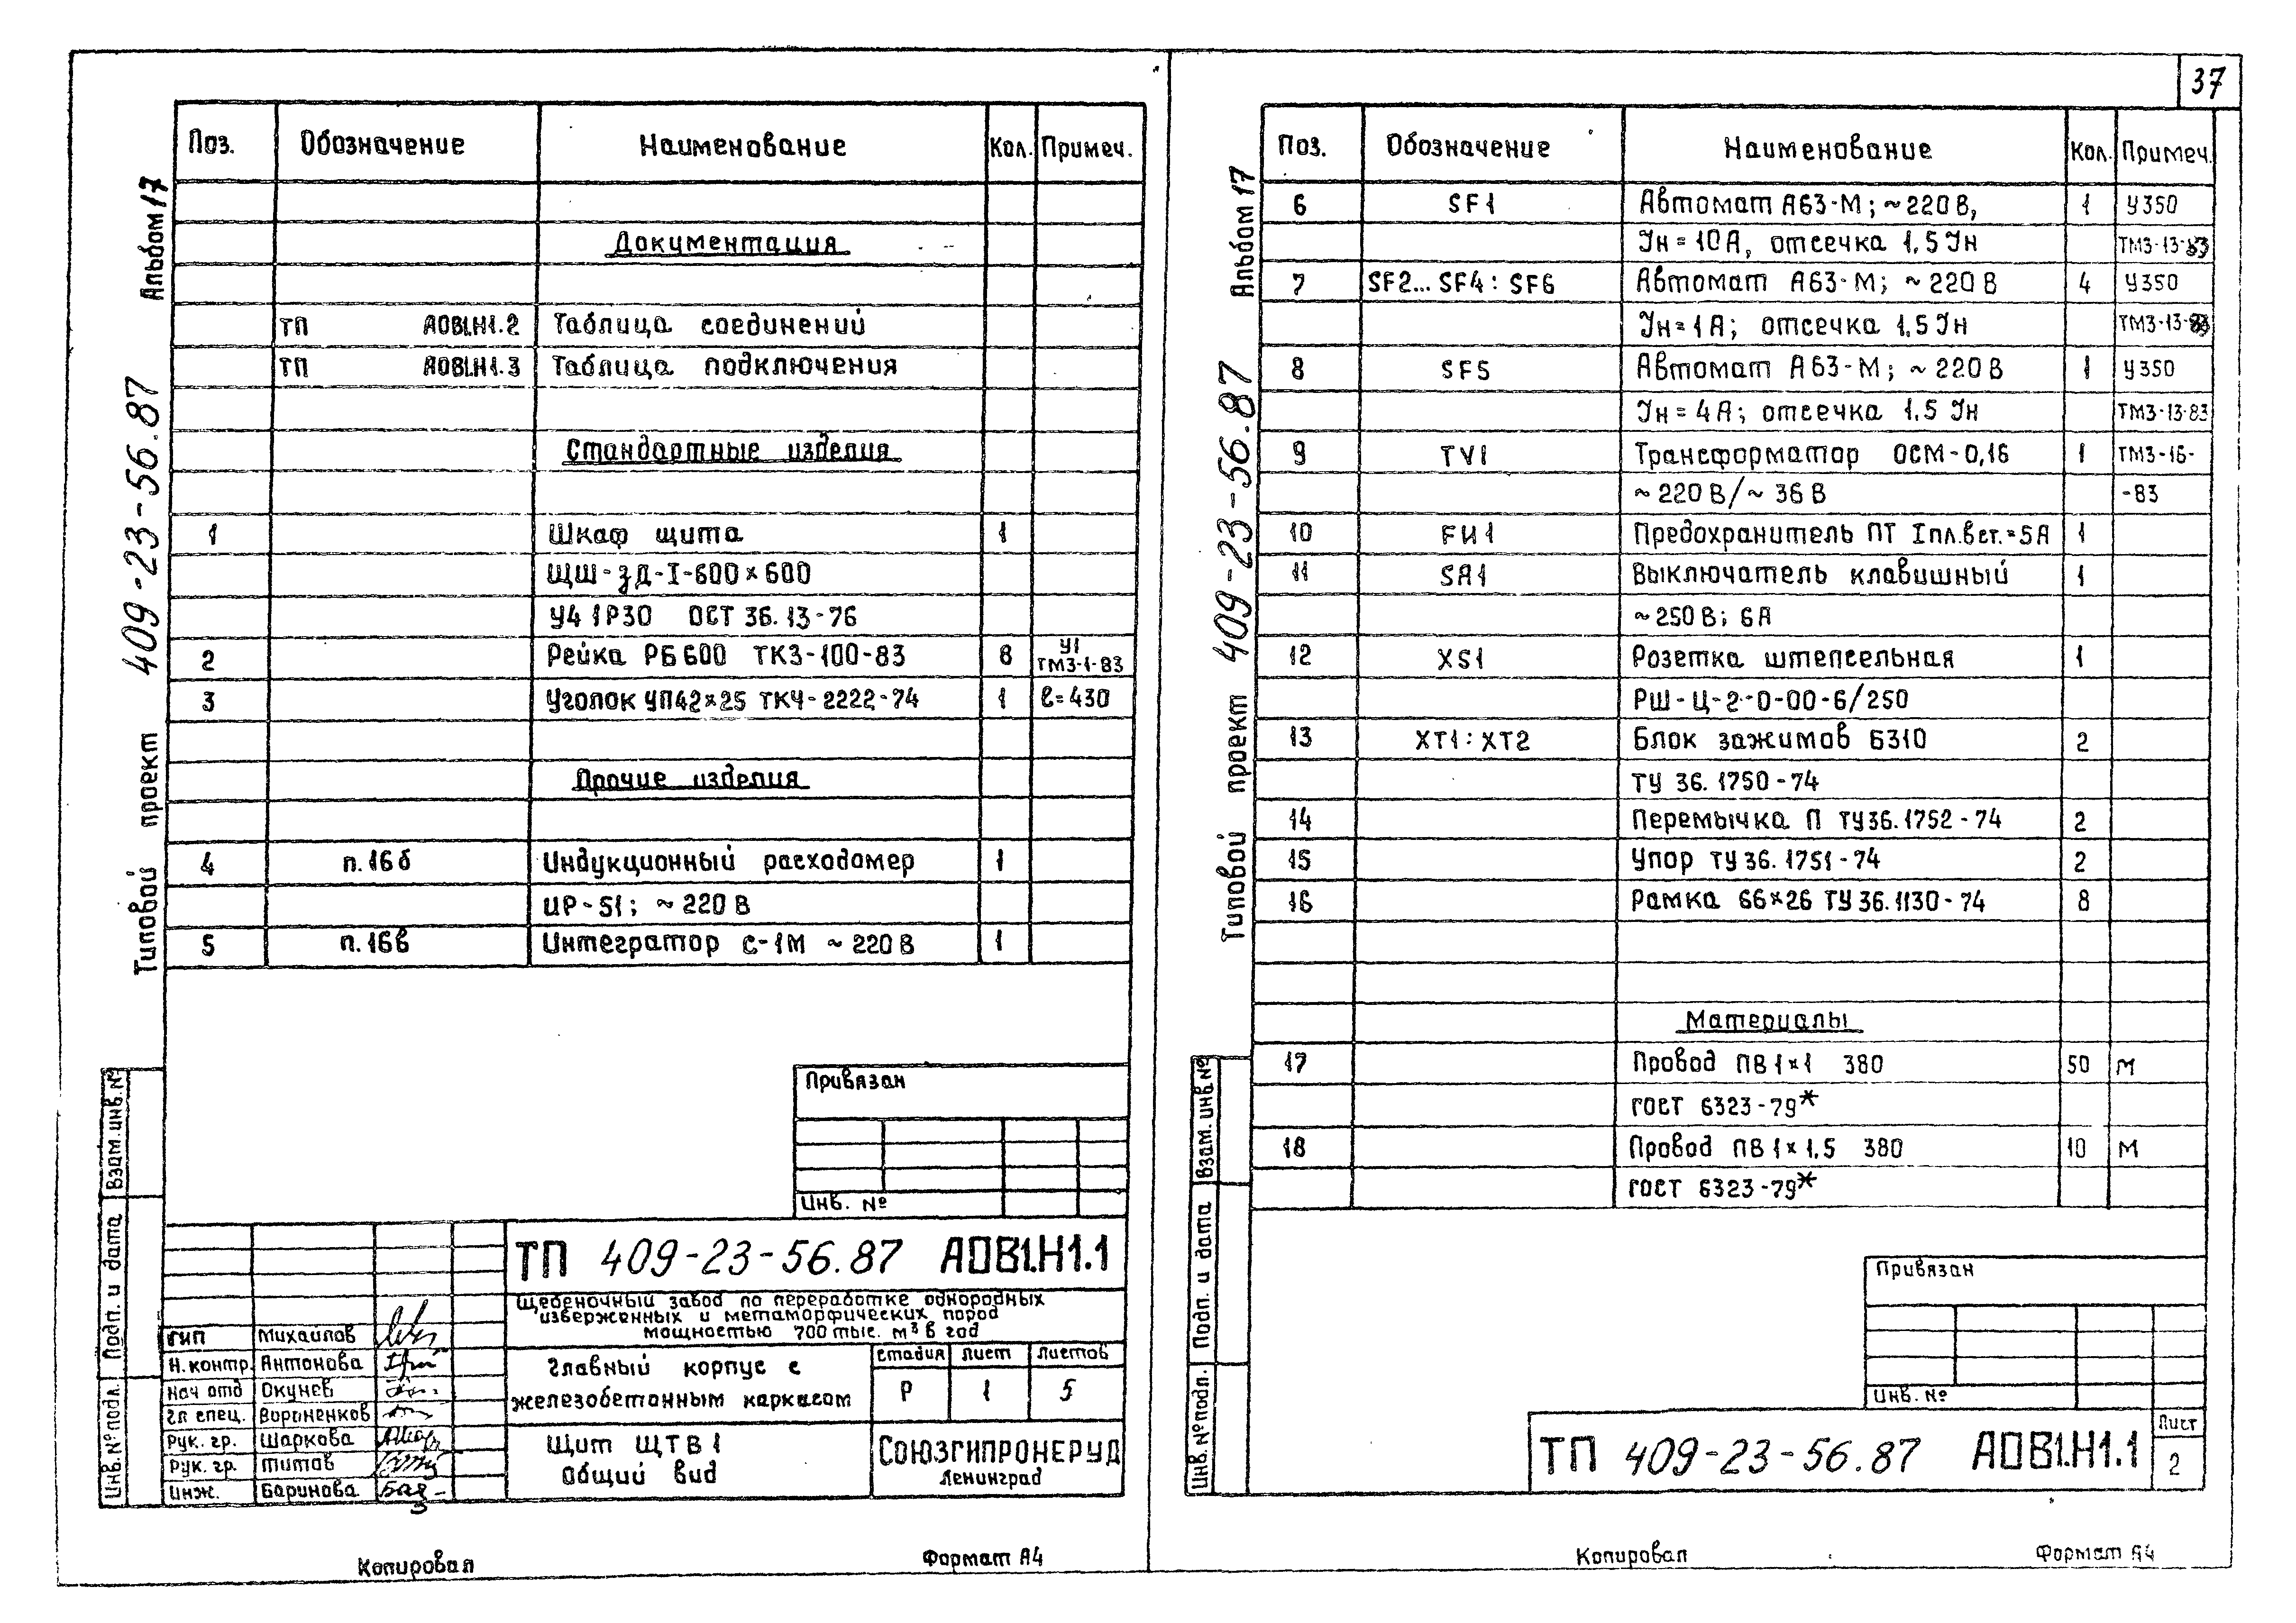 37
Альбом 17
Типовой проект 409-23-56.87
Поз. Обозначение Наименование Кол. Примеч.
Документация
ТП АОВ1.Н1.2 Таблица соединений
ТП АОВ1.Н1.3 Таблица подключения
Стандартные изделия
1 Шкаф щита 1
ЩШ-ЗД-I-600×600
У4 IP30 ОСТ 36.13-76
2 Рейка РБ600 ТК3-100-83 8 У1 ТМ3-1-83
3 Уголок УП42×25 ТКЧ-2222-74 1 ℓ=430
Прочие изделия
4 п.16б Индукционный расходомер 1
ИР-51; ~220В
5 п.16в Интегратор С-1М ~220В 1
Привязан
Инв. №
Взам. инв. №
Подп. и дата
Инв. № подл.
ТП 409-23-56.87 АОВ1.Н1.1
Щебеночный завод по переработке однородных
изверженных и метаморфических пород
мощностью 700 тыс. м³ в год
ГИП Михайлов
Н. контр. Антонова
Нач отд Окунев
Гл спец. Вороненков
Рук. гр. Шаркова
Рук. гр. Титов
Инж. Баринова
Главный корпус с
железобетонным каркасом
Стадия Лист Листов
Р 1 5
Щит ЩТВ1
Общий вид
СОЮЗГИПРОНЕРУД
Ленинград
Копировал Формат А4
Альбом 17
Типовой проект 409-23-56.87
Поз. Обозначение Наименование Кол. Примеч.
6 SF1 Автомат А63-М; ~220В, 1 У350
Iн=10А, отсечка 1,5Iн ТМ3-13-83
7 SF2...SF4: SF6 Автомат А63-М; ~220В 4 У350
Iн=1А; отсечка 1,5Iн ТМ3-13-83
8 SF5 Автомат А63-М; ~220В 1 У350
Iн=4А; отсечка 1,5 Iн ТМ3-13-83
9 TV1 Трансформатор ОСМ-0,16 1 ТМ3-16-
~220В/~36В -83
10 FU1 Предохранитель ПТ Iпл.вст.=5А 1
11 SA1 Выключатель клавишный 1
~250В; 6А
12 XS1 Розетка штепсельная 1
РШ-Ц-2-0-00-6/250
13 XT1: XT2 Блок зажимов Б310 2
ТУ 36.1750-74
14 Перемычка П ТУ36.1752-74 2
15 Упор ТУ36.1751-74 2
16 Рамка 66×26 ТУ36.1130-74 8
Материалы
17 Провод ПВ1×1 380 50 м
ГОСТ 6323-79*
18 Провод ПВ1×1,5 380 10 м
ГОСТ 6323-79*
Взам. инв. №
Подп. и дата
Инв. № подл.
Привязан
Инв. №
ТП 409-23-56.87 АОВ1.Н1.1
Лист
2
Копировал Формат А4